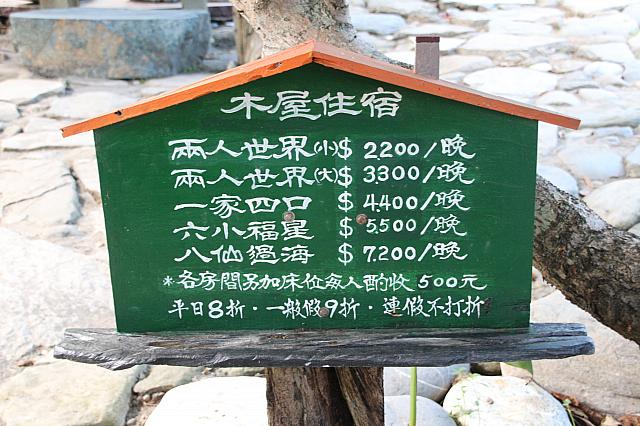 木屋住宿
兩人世界(小)$ 2,200/晚
兩人世界(大)$ 3,300/晚
一家四口 $ 4,400/晚
六小福星 $ 5,500/晚
八仙過海 $ 7,200/晚
*各房間另加床位每人酌收 500元
平日8折·一般假9折·連假不打折